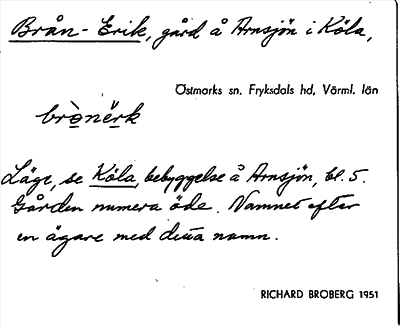 Brån-Erik, gård å Arnsjön i Köla,
Östmarks sn. Fryksdals hd, Värml. län
brònèrk
Läge, se Köla, bebyggelse å Arnsjön, bl. 5.
Gården numera öde. Namnet efter
en ägare med detta namn.
RICHARD BROBERG 1951